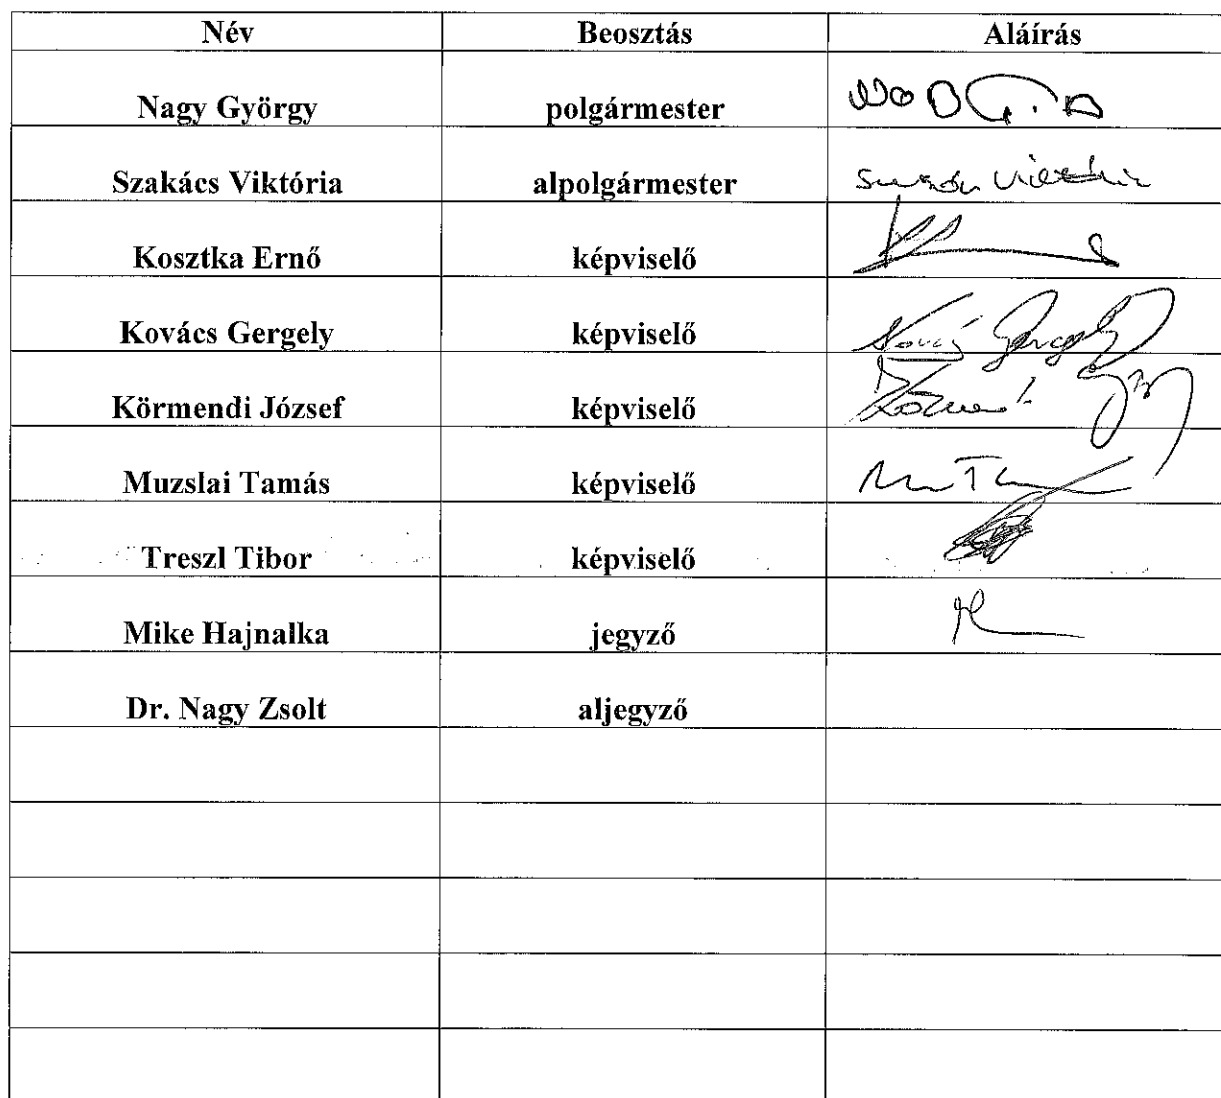 Név Beosztás Aláírás
Nagy György polgármester
Szakács Viktória alpolgármester
Kosztka Ernő képviselő
Kovács Gergely képviselő Kovács Gergely
Körmendi József képviselő
Muzslai Tamás képviselő
Treszl Tibor képviselő
Mike Hajnalka jegyző
Dr. Nagy Zsolt aljegyző